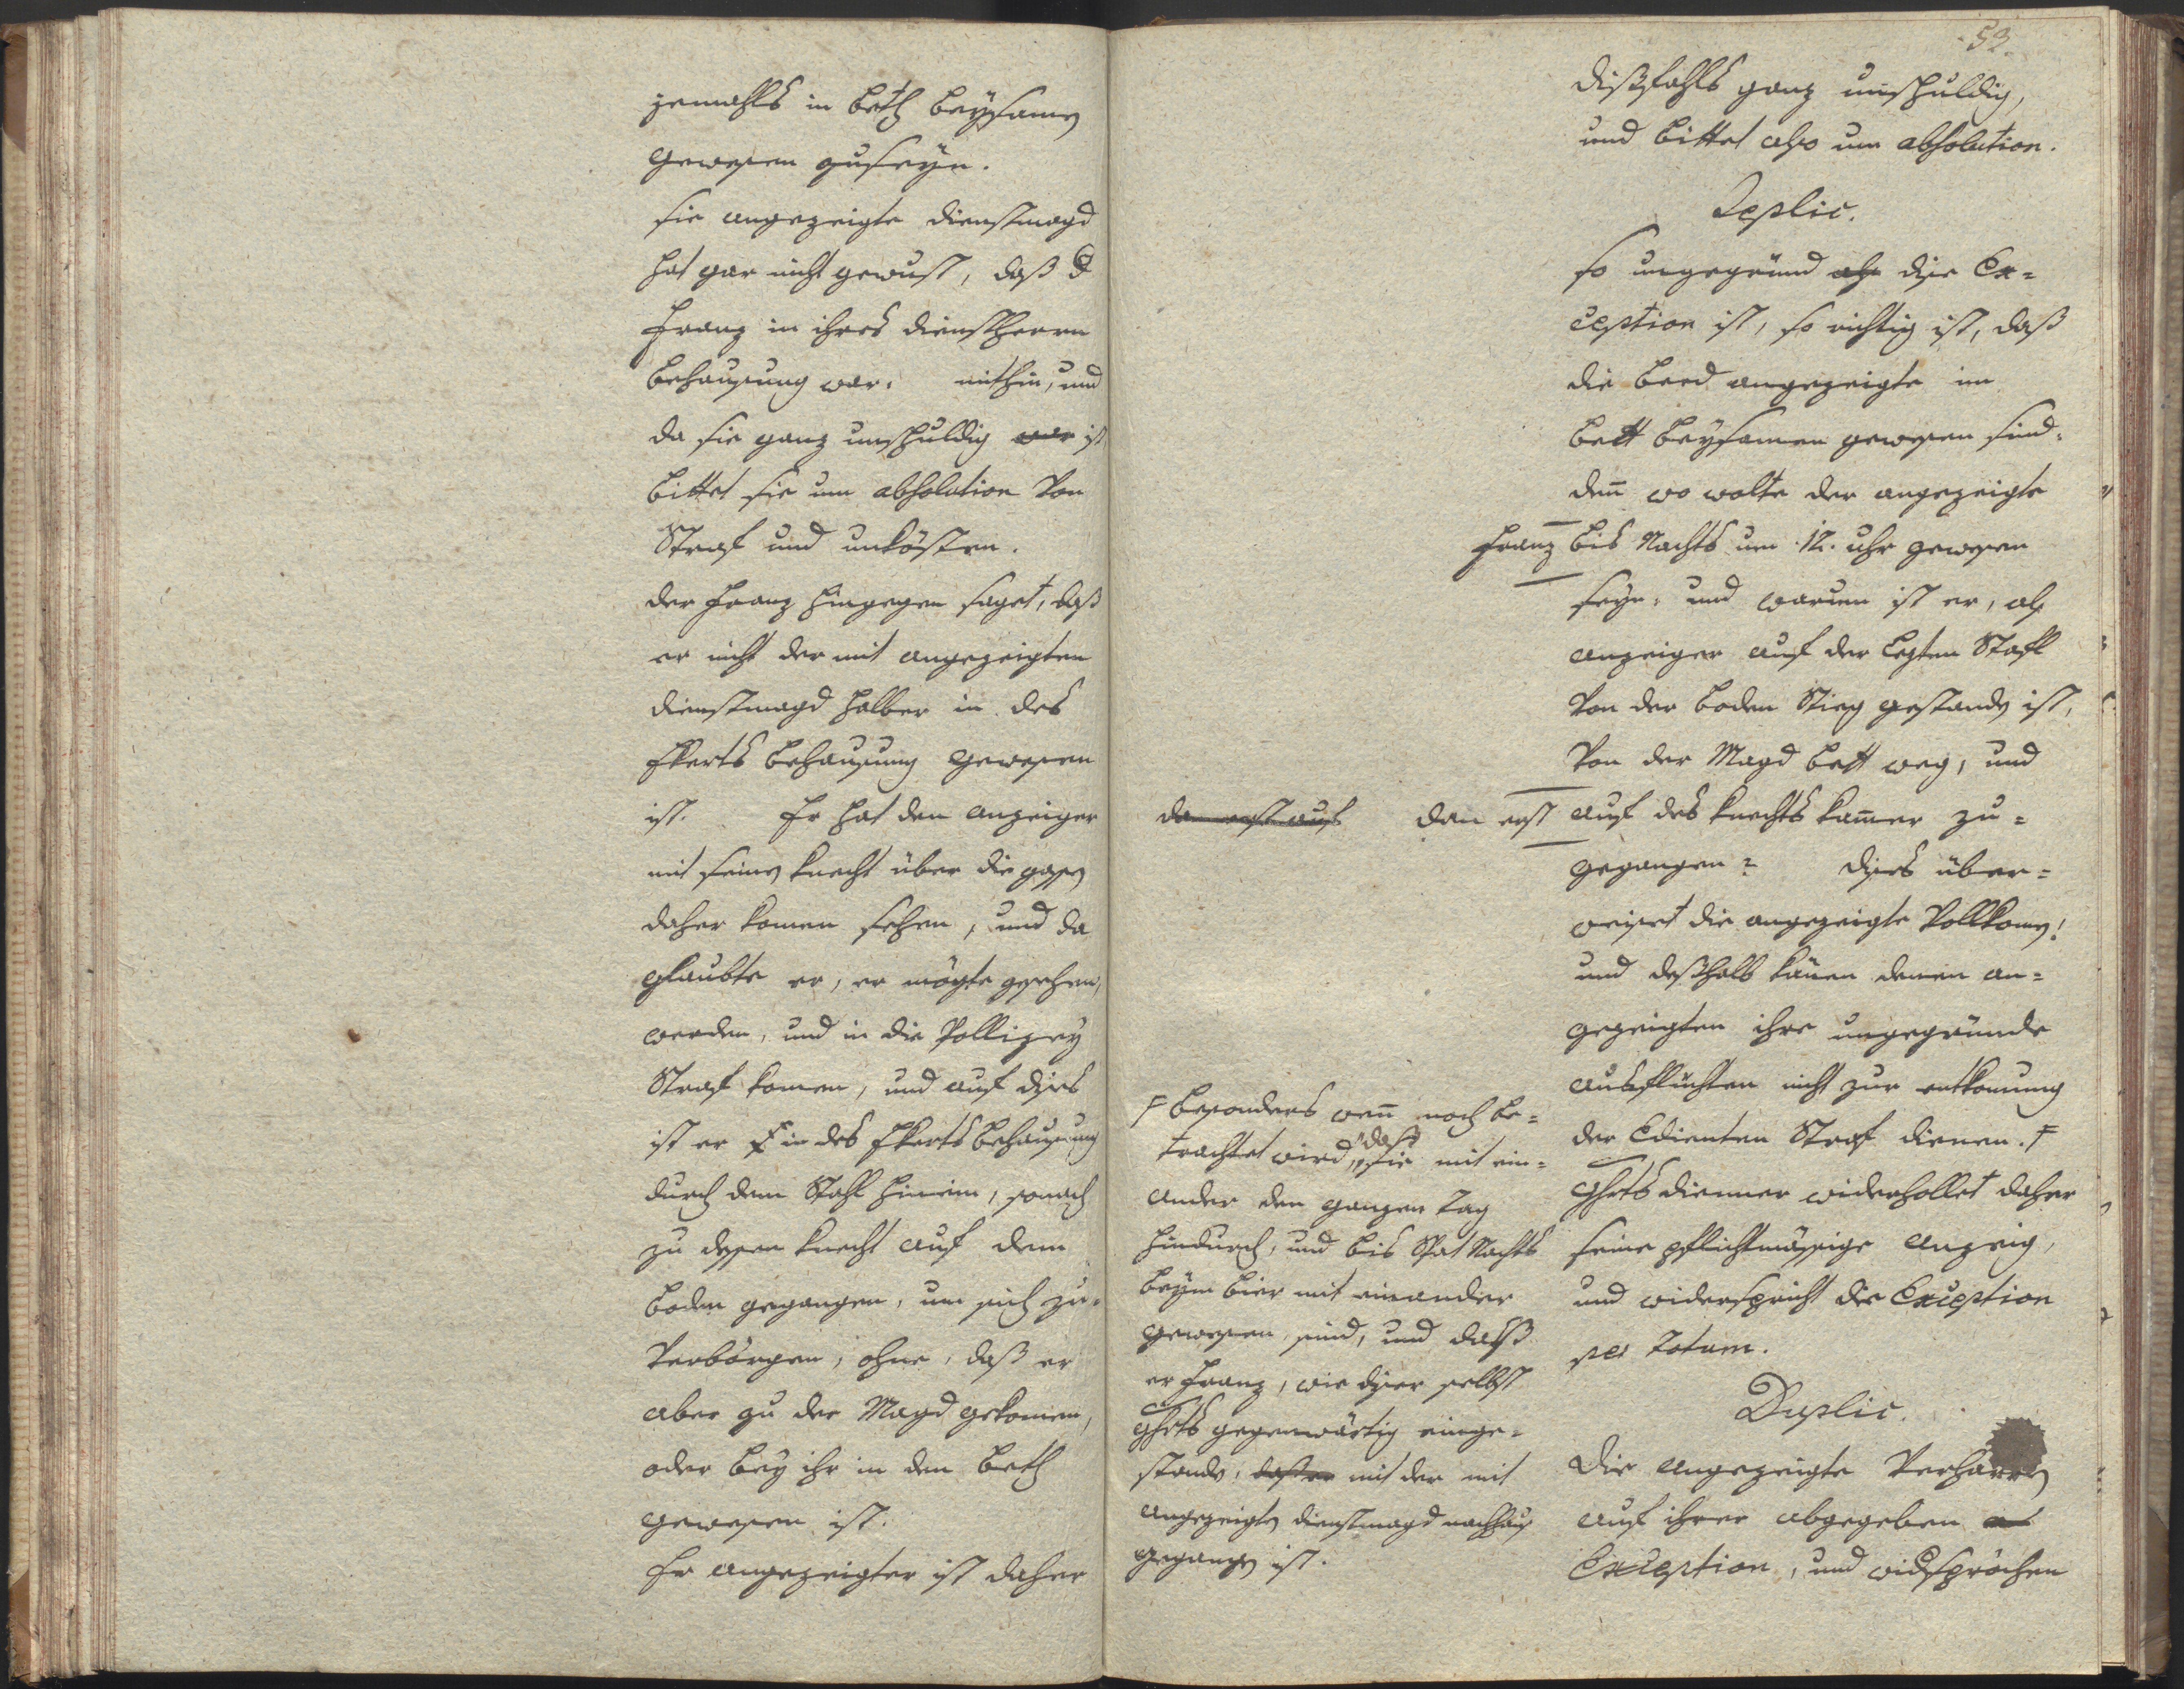 jemahls in beth beysamen
gewesen zuseyn.
sie angezeigte dienstmagd
hat gar nicht gewust, daß d
Franz in ihres dienstherrn
behausung war. mithin, und
da sie ganz unschuldig war ist
bittet sie um absolution von
Straf und unkösten.
der Franz hingegen saget, daß
er nicht der mit angezeigten
dienstmagd halber in des
Ekerts behausung gewesen
ist. Er hat den anzeiger
mit seinen knecht über die gassen
daher komen sehen, und da
glaubte er, er mögte gesehen
werden, und in die Pollizey
Straf komen, und auf dises
ist er in des Ekerts behausung
durch dem Stahl hinein, sonach
zu dessen knecht auf dem
boden gegangen, um sich zu
verbörgen, ohne, daß er
aber zu der Magd gekomen,
oder bey ihr in dem beth
gewesen ist.
Er angezeigter ist daher
53.
dißfahls ganz unschuldig,
und bittet also um absolution.
Replic.
so ungegründ als dise Ex=
ception ist, so richtig ist, daß
die beed angezeigte im
bett beysamen gewesen sind.
den wo wolte der angezeigte
Franz bis Nachts um 12. uhr gewesen
seyn. und warum ist er, als
anzeiger auf der lezten Stafl
von der boden Stieg gestanden ist,
von der Magd bett weg, und
da erst auf dan erst auf des knechts kamer zu=
gegangen? dises über=
weiset die angezeigte vollkomen!
und deßhalb könen denen an=
gezeigten ihre ungegründe
ausflüchten nicht zur entkomung
der Edienten Straf dienen. F
Ghrts dienner widerhollet daher
seine pflichtmässige anzeig,
und widerspricht die Exception
per totum.
F besonders wen noch be=
trachtet wird, daß sie mit ein=
ander den ganzen Tag
hindurch, und bis Spat Nachts
beym bier mit einander
gewesen sind, und daß
er Franz, wie diser selbst
Ghrts gegenwärtig einge=
stande, daß er mit der mit
angezeigten dienstmagd nachhaus
gegangen ist.
Duplic.
Die angezeigte verharren
auf ihrer abgegeben
Exception, und widsprächen